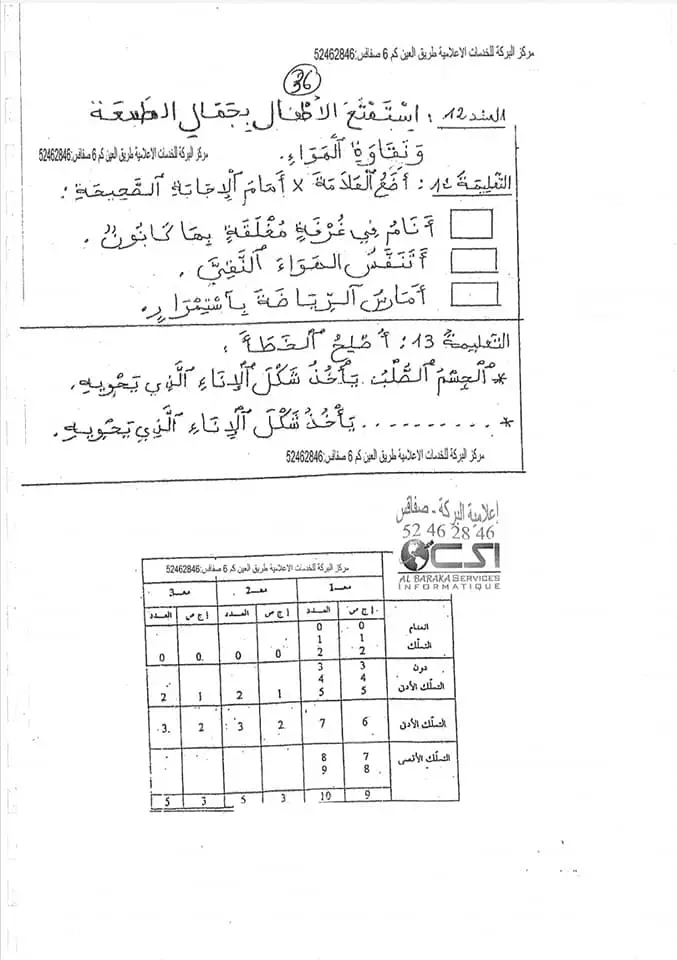 مركز البركة للخدمات الاعلامية طريق العين كم 6 صفاقس:52462846
36
السند 12 : اِسْتَمْتَعَ الأَطْفَالُ بِجَمَالِ الطبيعَة
وَنَقَاوَةِ الْهَوَاءِ.
مركز البركة للخدمات الاعلامية طريق العين كم 6 صفاقس:52462846
التعليمة 12 : أَضَعُ الْعَلَامَةَ x أَمَامَ الْإِجَابَةِ الصَّحِيحَةِ :
أَنَامُ فِي غُرْفَةٍ مُغْلَقَةٍ بِهَا كَانُونٌ.
أَتَنَفَّسُ الهَوَاءَ النَّقِيَّ.
أُمَارِسُ الرِّيَاضَةَ بِاسْتِمْرَارٍ.
التعليمة 13 : أُصْلِحُ الْخَطَأَ :
* اَلْجِسْمُ الصُّلْبُ يَأْخُذُ شَكْلَ الْإِنَاءِ الَّذِي يَحْوِيهِ.
* .......... يَأْخُذُ شَكْلَ الْإِنَاءِ الَّذِي يَحْوِيهِ.
مركز البركة للخدمات الاعلامية طريق العين كم 6 صفاقس:52462846
إعلامية البركة - صفاقس
52 46 28 46
CSI
AL BARAKA SERVICES
INFORMATIQUE
مركز البركة للخدمات الاعلامية طريق العين كم 6 صفاقس:52462846
معـ1 معـ2 معـ3
إ ج ص العدد إ ج ص العدد إ ج ص العدد
انعدام 0 0
1 1
التملك 2 2 0 0 0 0
دون 3 3
4 4
التملك الأدنى 5 5 1 2 1 2
التملك الأدنى 6 7 2 3 2 3
التملك الأقصى 7 8
8 9
9 10 3 5 3 5